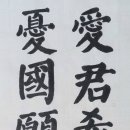 愛君希
憂國願